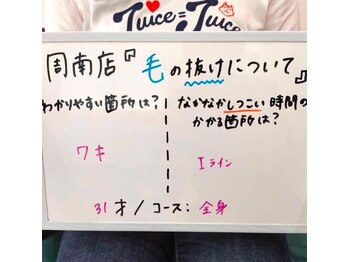 Juice=Juice
周南店『毛の抜けについて』
わかりやすい箇所は？
ワキ
なかなかしつこい時間の
かかる箇所は？
Iライン
31才/コース：全身